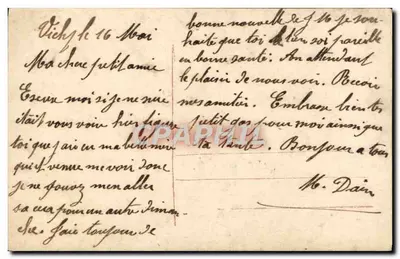 Vichy le 16 Mai
Ma chere petit amie
Excuse moi si je ne suis
était vous voir hier figure
toi que j'ais eu ma belle mère
qui est venue me voir donc
je ne pouvez m'en aller
sa cera pour un autre diman
che. Jais toujour de
bonne nouvelle de J M je sou
haite que toi le tien soi pareille
en bonne santé. En attendant
le plaisir de nous voir. Recoi
mes amitiés. Embrasse bien tes
petit dos pour moi ainsi que
ta tante. Bonjour a tous
M. Dain
CPARAMA